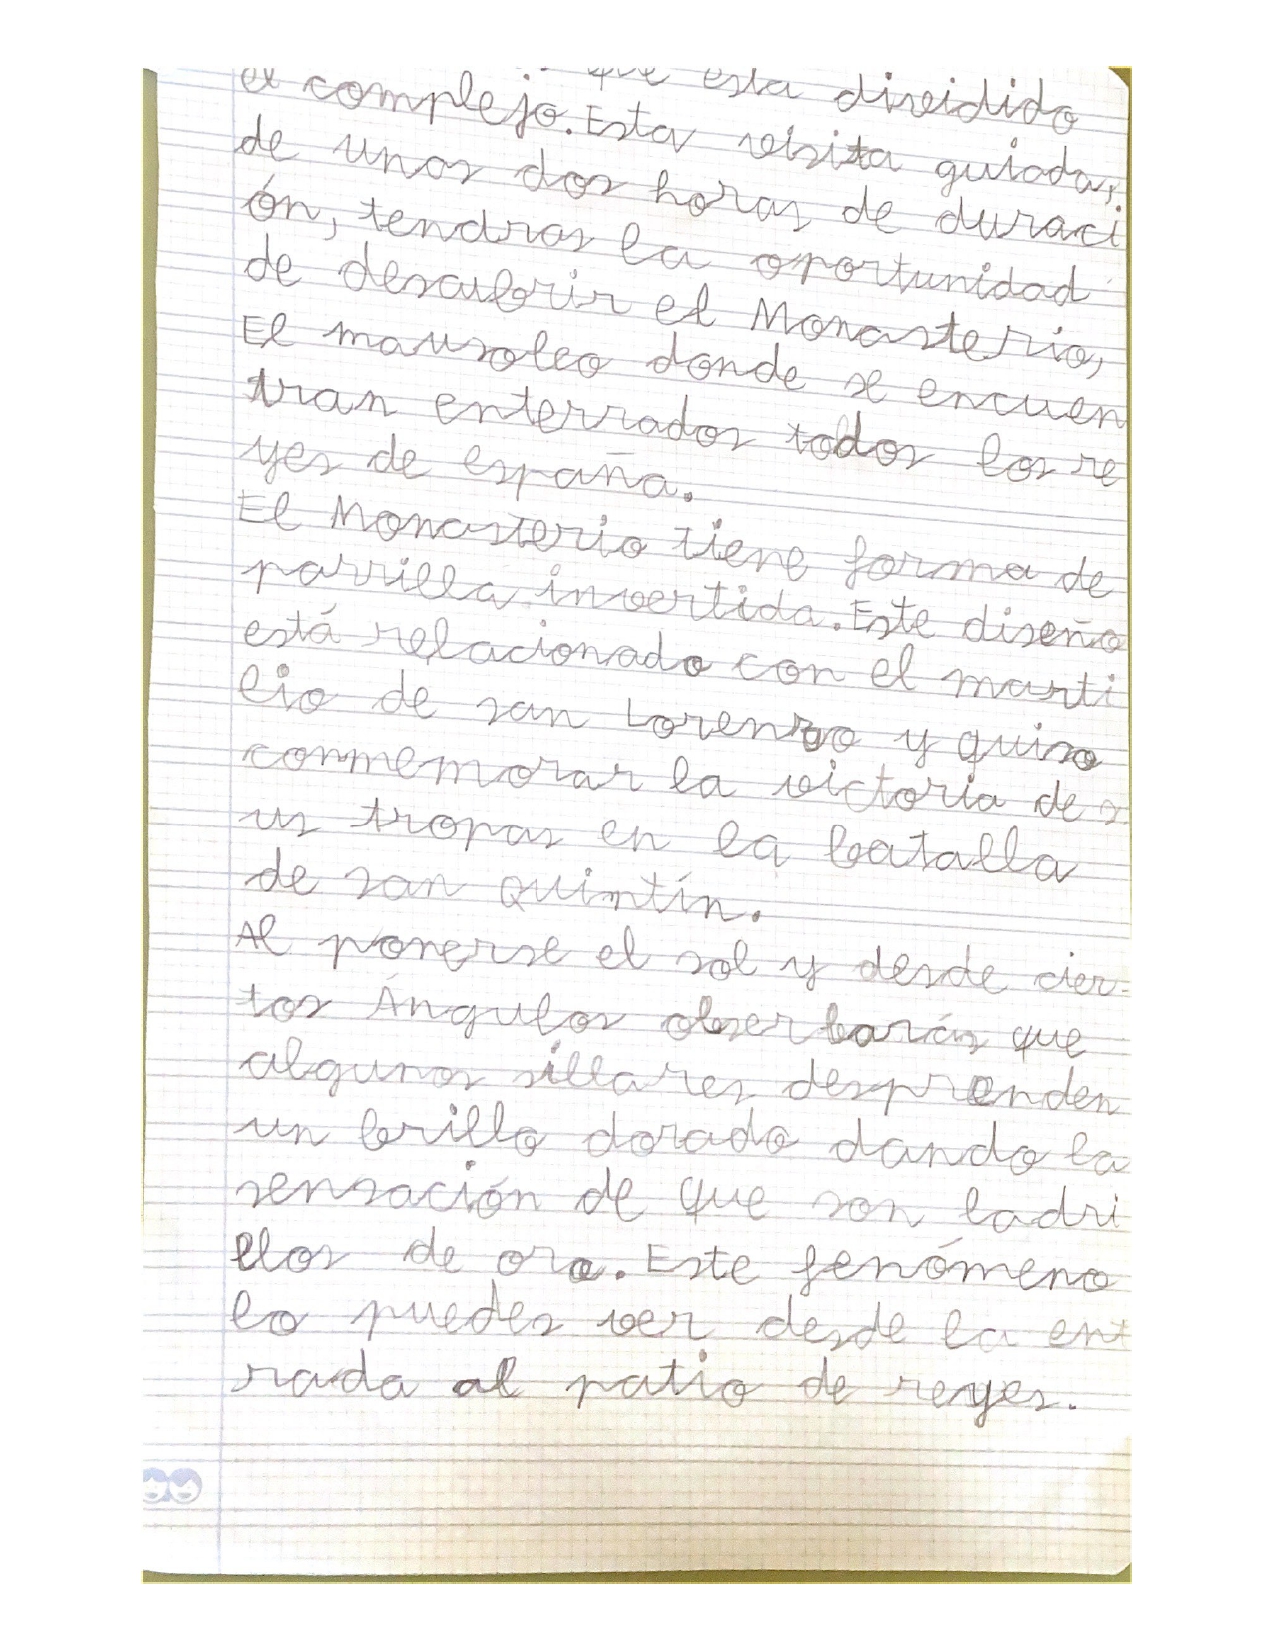 que esta divídido
el complejo. Esta visita guiada,
de unos dos horas de duraci
ón, tendras la oportunidad
de descubrir el Monasterio,
El mausoleo donde se encuen
tran enterrados todos los re
yes de españa.
El Monasterio tiene forma de
parrilla invertida. Este diseño
está relacionado con el marti
lio de san Lorenzo y quiso
conmemorar la victoria de s
us tropas en la batalla
de san quintín.
Al ponerse el sol y desde cier-
tos Ángulos obserbarás que
algunos sillares desprenden
un brillo dorado dando la
sensación de que son ladri
llos de oro. Este fenómeno
lo puedes ver desde la ent
rada al patio de reyes.